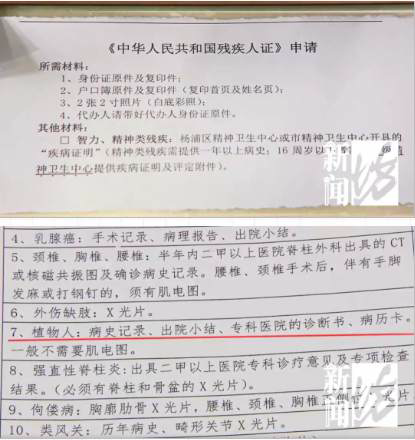 《中华人民共和国残疾人证》申请
所需材料：
1、身份证原件及复印件；
2、户口簿原件及复印件（复印首页及姓名页）；
3、2张2寸照片（白底彩照）；
4、代办人请带好代办人身份证原件。
其他材料：
□ 智力、精神类残疾：杨浦区精神卫生中心或市精神卫生中心开具的
“疾病证明”（精神类残疾需提供一年以上病史；16周岁以
神卫生中心提供疾病证明及评定附件）。
新闻坊
4、乳腺癌：手术记录、病理报告、出院小结。
5、颈椎、胸椎、腰椎：半年内二甲以上医院脊柱外科出具的CT
或核磁共振图及确诊病史记录。腰椎、颈椎手术后，伴有手脚
发麻或打钢钉的，须有肌电图。
6、外伤缺肢：X光片。
7、植物人：病史记录、出院小结、专科医院的诊断书、病历卡。
一般不需要肌电图。
8、强直性脊柱炎：出具二甲以上医院专科诊疗意见及专项检查
结果。（必须有脊柱和骨盆的X光片）。
9、佝偻病：胸廓肋骨X光片，腰椎、颈椎、胸椎
10、类风关：历年病史、畸形关节X光片。
新闻坊